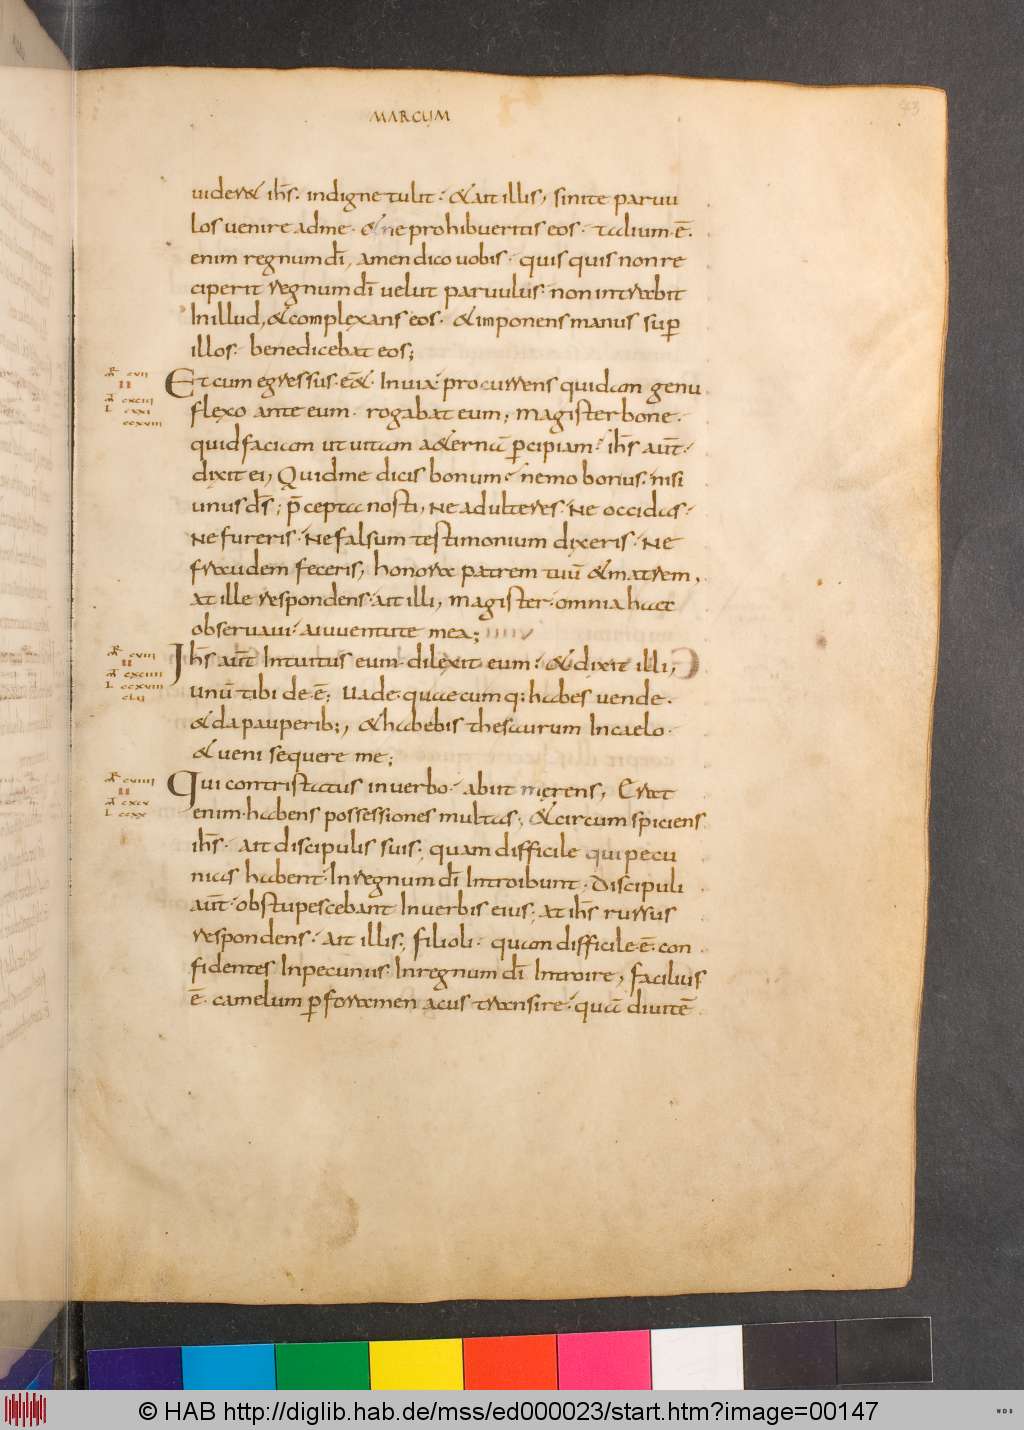 MARCUM
43
uider& ihs̄. indigne tulit. & ait illis, sinite paruu
los uenire adme. & ne prohibueritis eos. talium.ē.
enim regnum dī, amen dico uobis. quis quis non re
ciperit regnum dī uelut paruulus. non intrabit
In illud, & complexans eos. & imponens manus sup̄
illos. benedicebat eos;
mr̄ cvii
Et cum egressus.eēt. In uiā procurrens quidam genu
II
mt̄ cxciii
flexo ante eum. rogabat eum; magister bone.
L ccxviii
quid faciam ut uitam aeternā p̄cipiam. ihs̄ aut̄.
dixit ei, Quid me dicis bonum. nemo bonus. nisi
unus ds̄; p̄cepta nosti, Ne adulteres. Ne occidas.
Ne fureris. Ne falsum testimonium dixeris. Ne
fraudem feceris, honora patrem tuū & matrem,
At ille respondens. ait illi, magister. omnia haec
obseruaui. aiuuentute mea;
mr̄ cviii
Ihs̄ aut̄ Intuitus eum. dilexit eum. & dixit illi,
II
mt̄ cxciiii
L ccxviii
Unū tibi de.ē; Uade. quaecumq: habes uende.
& da pauperib;, & habebis thesaurum In caelo.
& ueni sequere me;
mr̄ cviiii
Qui contristatus in uerbo. abiit męrens, Erat
II
mt̄ cxcv
enim. habens possessiones multas; & circum spiciens
L ccxx
ihs̄. ait discipulis suis; quam difficile qui pecu
nias habent. In regnum dī Introibunt. Discipuli
aut̄. obstupescebant In uerbis eius; at ihs̄ rursus
respondens. ait illis; filioli. quam difficile.ē. con
fidentes In pecuniis. In regnum dī Introire, facilius
ē. camelum p̄ foramen acus transire. quā diuitē
© HAB http://diglib.hab.de/mss/ed000023/start.htm?image=00147
WDB